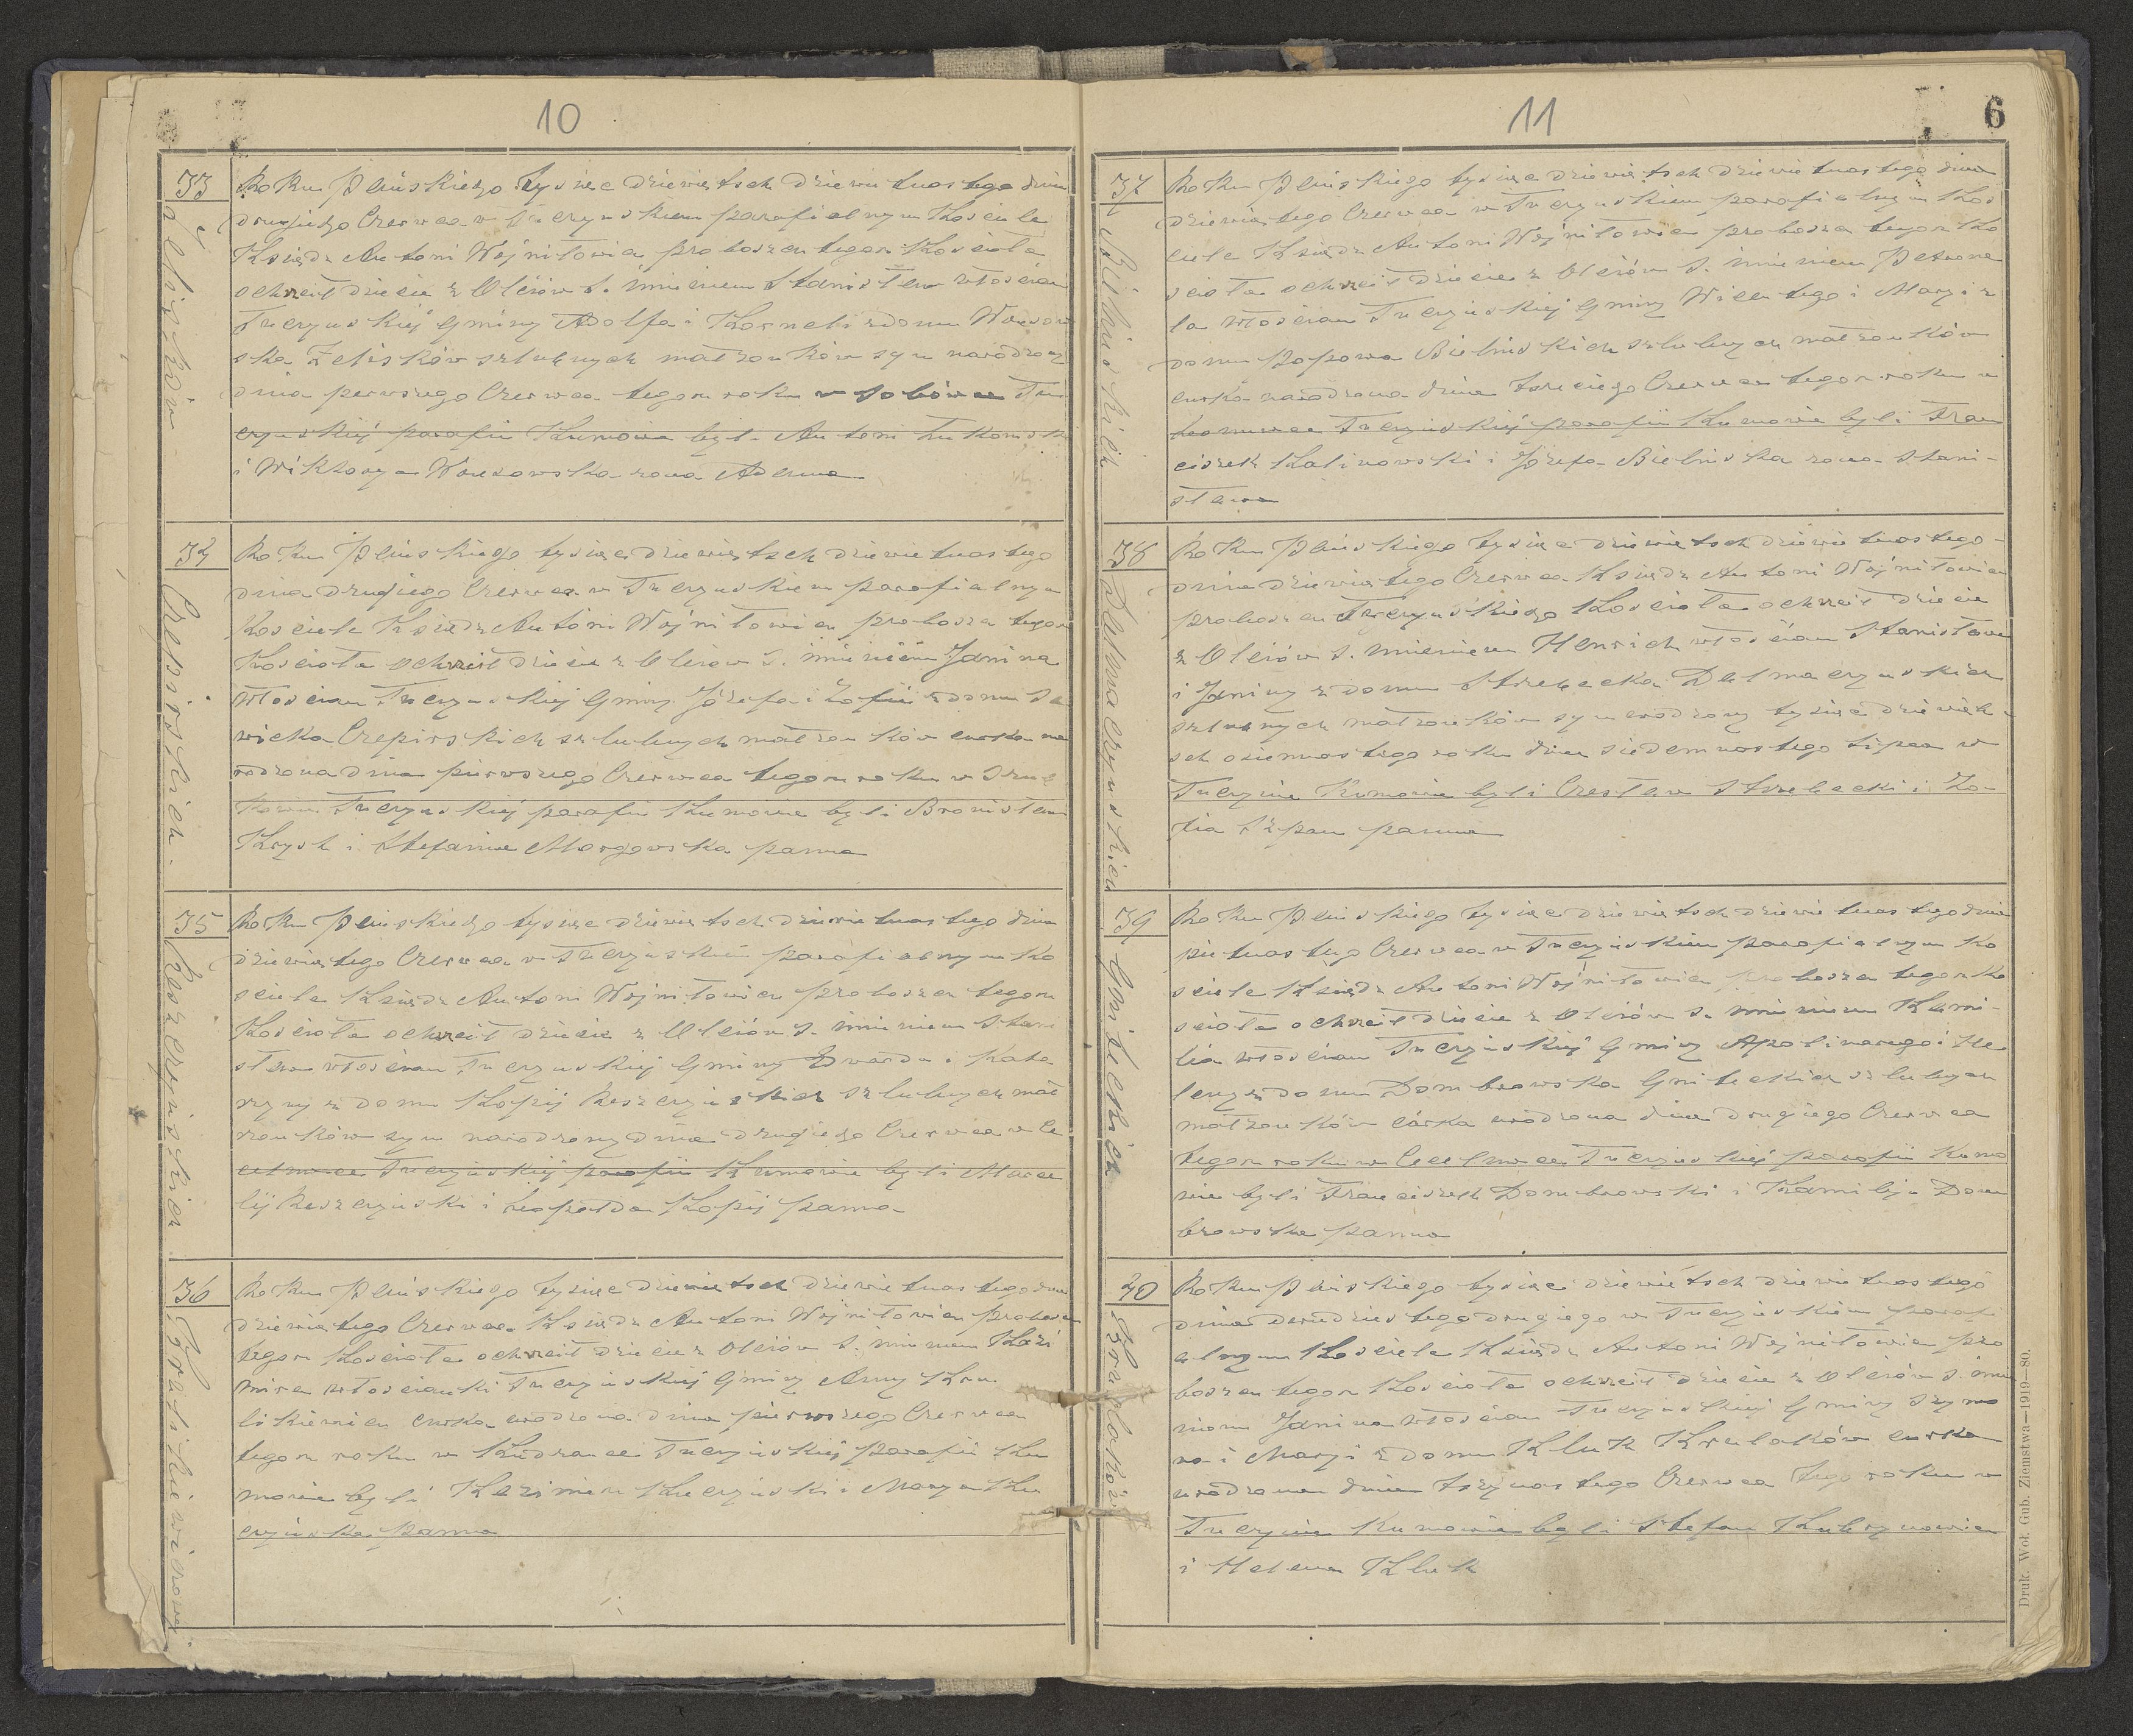 10
33
Zeliszków
Roku Pańskiego tysiąc dziewiętset dziewietnastego dnia
drugiego Czerwca w Tuczyńskiem parafialnym Kosciele
Ksiądz Antoni Wojniłowicz proboszcz tegoż Koscioła
ochrzcił dziecie z Olejów S. imieniem Stanisław włościan
Tuczynskiej Gminy Adolfa i Korneli z domu Wonsow
ska Zeliszków szlubnych małzonków syn narodzony
dnia perwszego Czerwca tegoż roku w
czynskiej parafii Kumowie byli Antoni
i Wiktorya Wonsowska zona Adama
34
Czepirskich
Roku Pańskiego tysiąc dziewiętset dziewietnastego
dnia drugiego Czerwca w Tuczynskiem parafialnym
Kosciele Ksiądz Antoni Wojniłowicz probosza tegoż
Koscioła ochrzcił dziecie z Olejów S. imieniem Janina
włościan Tuczynskiej Gminy Józefa i Zofii z domu Sa
wicka Czepirskich szlubnych małzonków curka na
rodzona dnia pierwszego Czerwca tegoż roku w
Tuczynskiej parafii Kumowie byli Bronisław
Krysk i Stefania Morgowska panna
35
Reszczyńskich
Roku Pańskiego tysiąc dziewiętset dziewietnastego dnia
dziewiątego Czerwca w Tuczynskim parafialnym Ko
sciele Ksiądz Antoni Wojniłowicz proboszcz tegoż
Koscioła ochrzcił dziecie z Olejów S. imieniem Stani
sław włościan Tuczynskiej Gminy Edwarda i Kata
rzyny z domu Kopij Reszczyńskich szlubnych mał
zonków syn narodzony dnia drugiego Czerwca w Ce
celówce Tuczynskiej parafii Kumowie byli Marce
lij Reszczynski i Leopolda Kopij panna
36
Kralikiewiczowej
Roku Pańskiego tysiąc dziewietset dziewietnastego dnia
dziewiątego Czerwca Ksiądz Antoni Wojniłowicz probosz
tegoż Koscioła ochrzcił dziecie z Olejów S. imieniem Kazi
mira włoscianki Tuczynskiej Gminy Anny Kra
likiewicz curka urodzona dnia pierwszego Czerwca
tegoż roku w Kudrance Tuczynskiej parafii Ku
mowie byli Kazimierz Kuczyński i Marya Ku
czyńska panna
11
6
37
Bielińskich
Roku Pańskiego tysiąc dziewiętset dziewietnastego dnia
dziewiątego Czerwca w Tuczynskiem parafialnym Kos
ciele Ksiądz Antoni Wojniłowicz probosza tegoż Ko
scioła ochrzcił dziecie z Olejów S. imieniem Petrone
la włościan Tuczynskiej Gminy Wicentego i Maryi z
domu Popowa Bielińskich szlubnych małzonków
curka narodzona dnia trzeciego Czerwca tegoż roku w
Tuczynskiej parafii Kumowie byli Fran
ciszek Kalinowski i Józefa Bielińska zona Stani-
sława
38
Dalmaczynskich
Roku Pańskiego tysiąc dziewiętset dziewietnastego
dnia dziewiątego Czerwca Ksiądz Antoni Wojniłowicz
proboszcz Tuczynskiego Koscioła ochrzcił dziecie
z Olejów S. imieniem Henrich włościan Stanisława
i Janiny z domu Strzelecka Dalmaczynskich
szlubnych małzonków syn urodzony tysiąc dziewięt-
set osiemnastego roku dnia siedemnastego Lipca w
Tuczynie Kumowie byli Czesław Strzelecki i Zo-
fia Szpan panna
39
Gniteckich
Roku Pańskiego tysiąc dziewiętset dziewietnastego dnia
pietnastego Czerwca w Tuczynskiem parafialnym Ko
sciele Ksiądz Antoni Wojniłowicz probosza tegoż Ko
scioła ochrzcił dziecie z Olejów S. imieniem Kami-
lia włościan Tuczynskiej Gminy Apolinarego i He
leny z domu Dombrowska Gniteckich szlubnych
małzonków córka urodzona dnia drugiego Czerwca
tegoż roku w Cecelówce Tuczynskiej parafii Kumo
wie byli Franciszek Dombrowski i Kamilja Dom
browska panna
40
Krulaków
Roku Pańskiego tysiąc dziewiętset dziewietnastego
dnia dwudziestego drugiego w Tuczynskiem parafi
alnym Kosciele Ksiądz Antoni Wojniłowicz pro
boszcz tegoż Koscioła ochrzcił dziecie z Olejów S. imie
niem Janina włościan Tuczynskiej Gminy Szymo
na i Maryi z domu Kluk Krulaków curka
urodzona dnia trzynastego Czerwca tego roku w
Tuczynie Kumowie byli Stefan Kubrynowicz
i Helena Kluk
Druk. Woł. Gub. Ziemstwa—1919—80.